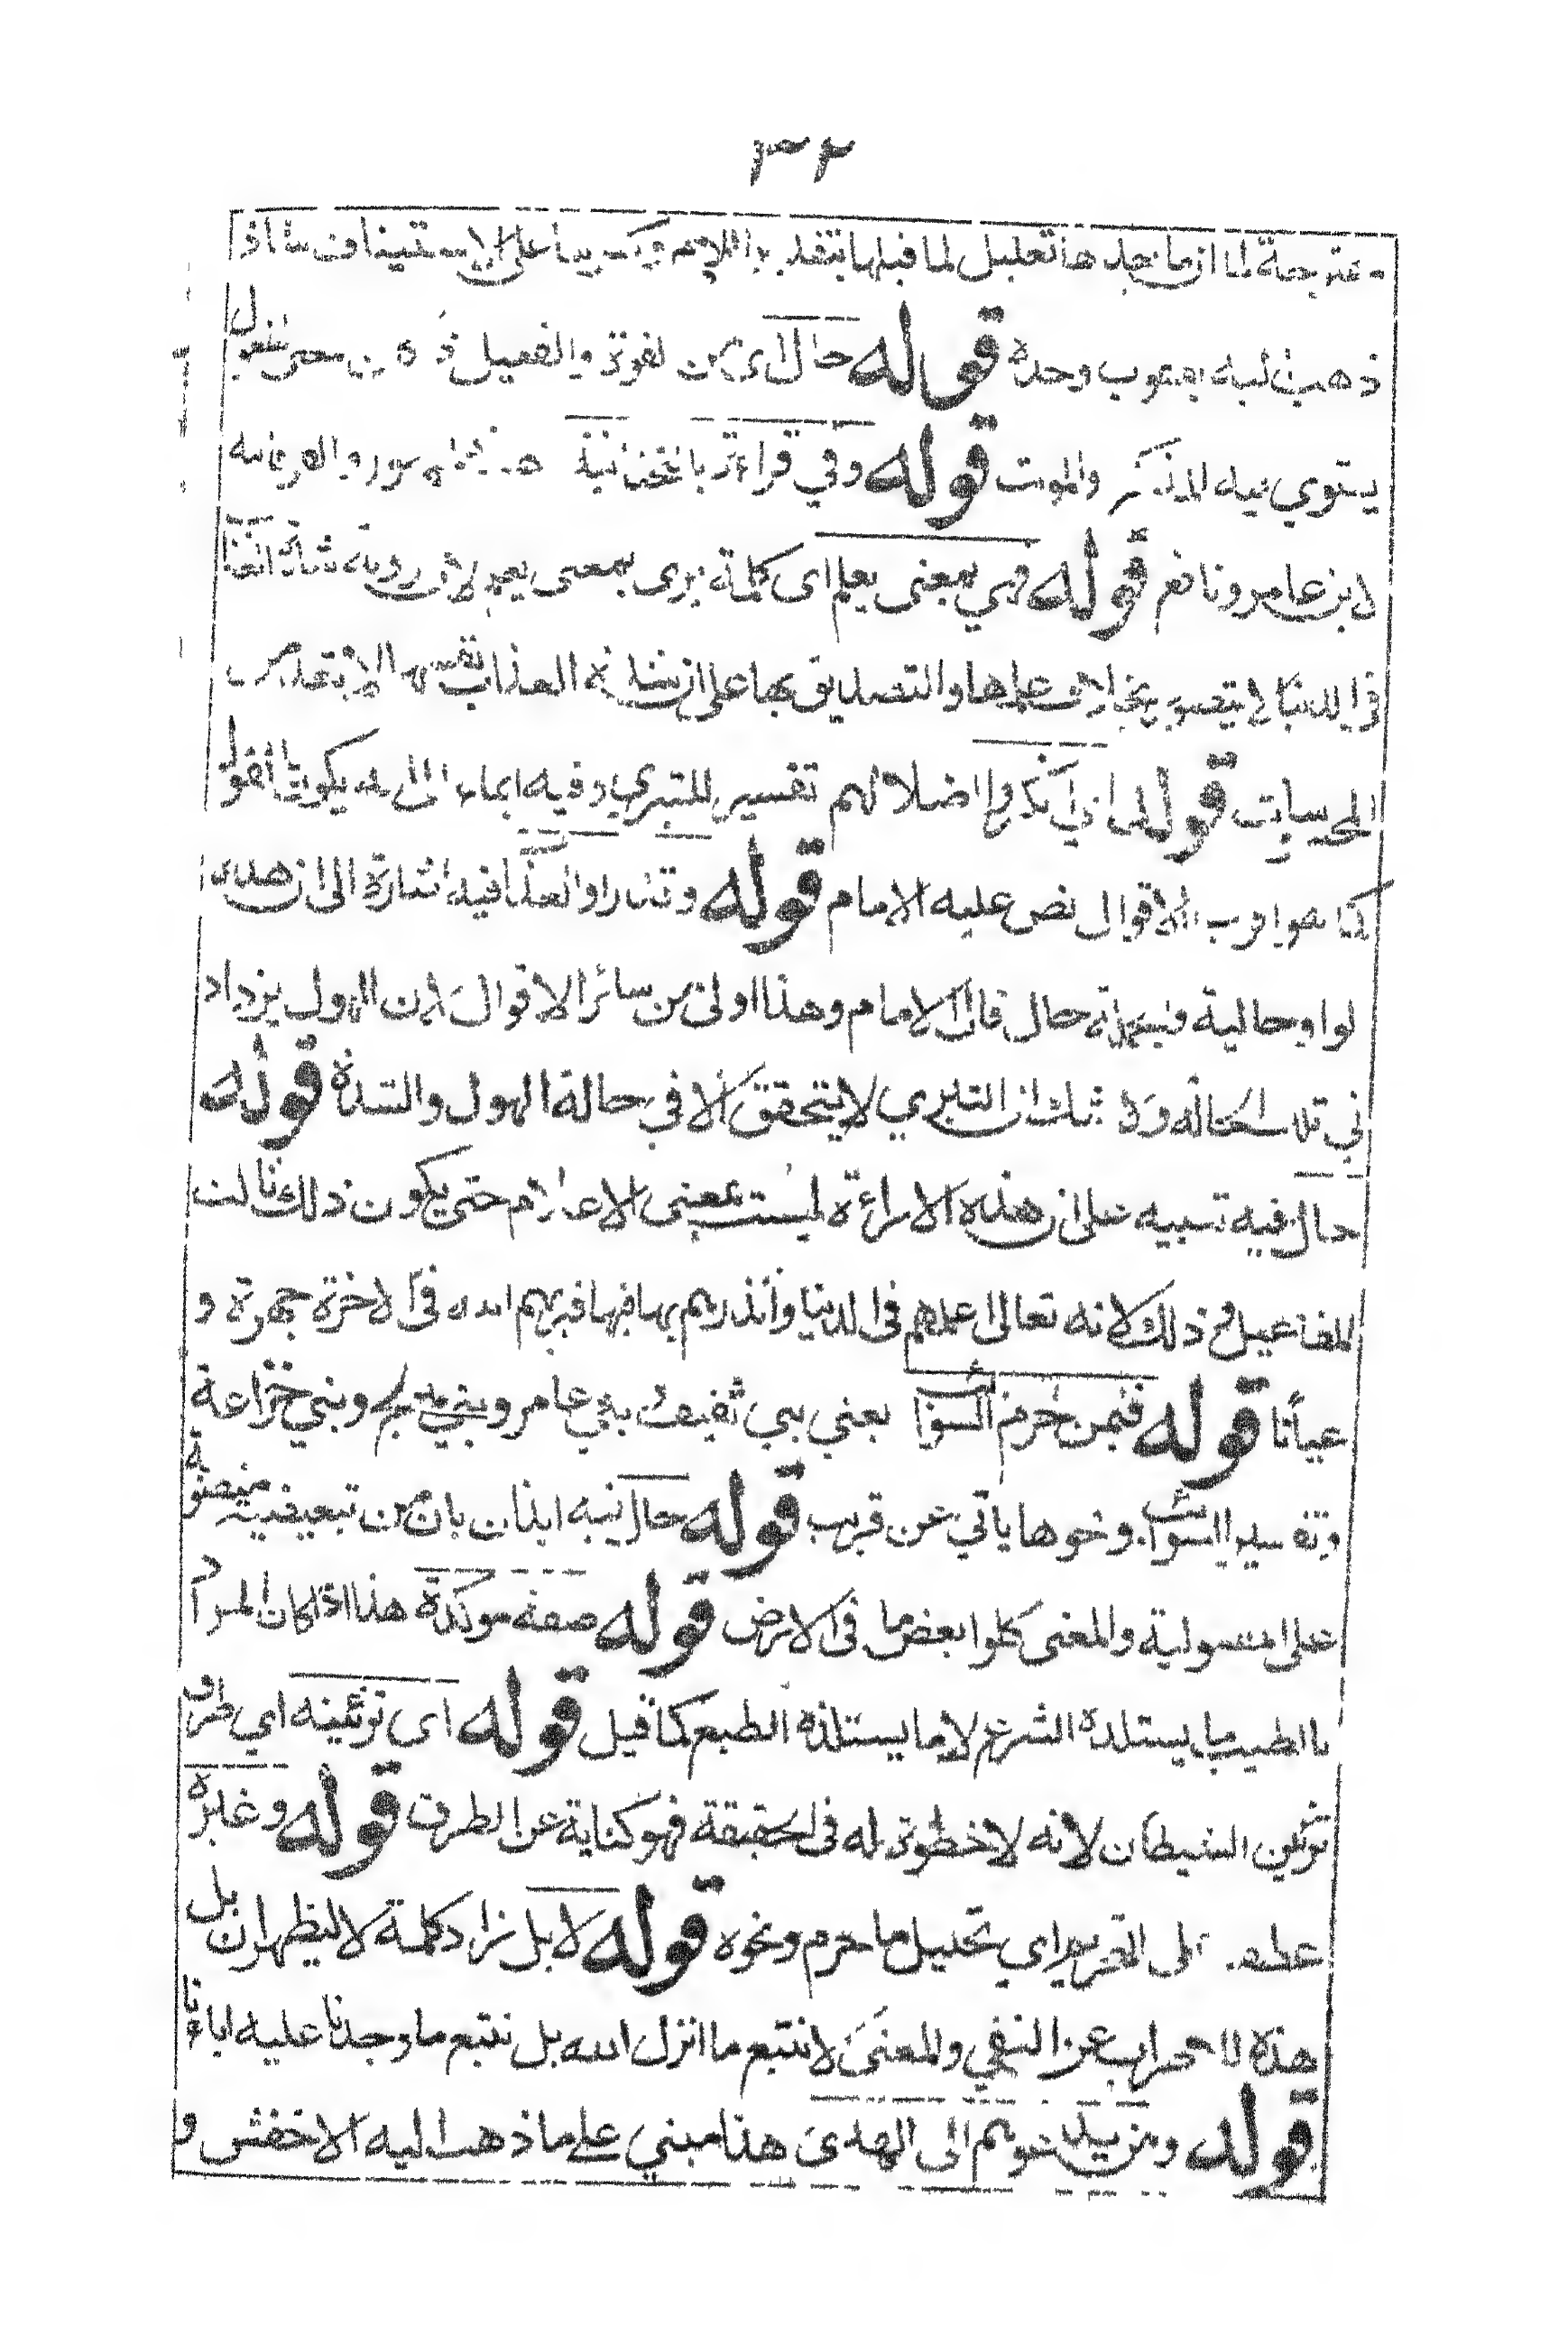 ٣٢
لما ان ما بعدها تعليل لما قبلها بتقدير اللام على الاستيناف
ذهب اليه يعقوب وحده قوله حال اى من القوة والفعيل
يستوي فيه المذكر والمونث قوله وفي قراءة بالتحتانية
لابن عامر ونافع قوله فهي بمعنى يعلم اى كلمة يرى بمعنى يعلم لان روية
فى الدنيا لم يتصور بخلاف علمها والتصديق بها على ان شدة العذاب نفسها لا تعد من
المحسيات قوله اى انكروا اضلالهم تفسير للتبري وفيه ايماء الى انه يكون بالقول
كما هو اقرب الاقوال نص عليه الامام قوله وقد راوا العذاب فيه اشارة الى ان هذه
لواو حالية فيتجملته حال قال الامام وهذا اولى من سائر الاقوال لان الهول يزداد
في تلك الحالة ولا شك ان التبري لا يتحقق الا في حالة الهول والشدة قوله
حال فيه تنبيه على ان هذه الاراءة ليست بمعنى الاعلام حتى يكون ذلك ثالث
المفاعيل و ذلك لانه تعالى اعلمهم فى الدنيا وأنذرهم بها فيها فيريهم الله فى الاخرة جهرة و
عيانا قوله فيمن حرم السوائب يعني بني ثقيف بني عامر وبني مدلج وبني خزاعة
وتفسير السوائب ونحوها ياتي عن قريب قوله حال نبه ايذان بان من تبعيضية منصوبة
على المفعولية والمعنى كلوا بعض ما فى الارض قوله صفة موكدة هذا اذا كان المراد
بالطيب ما يستلذه الشرع لا ما يستلذه الطبع كما قيل قوله اى تزئينه اي طرق
تزئين الشيطان لانه لا خطوة له فى الحقيقة فهو كناية عن الطرق قوله وغيره
عطف على التحريم اي تحليل ما حرم ونحوه قوله لا بل زاد كلمة لا ليظهر ان بل
هذه للاضراب عن النفي والمعنى لا نتبع ما انزل الله بل نتبع ما وجدنا عليه اباءنا
قوله ومن يدعوهم الى الهدى هذا مبني على ما ذهب اليه الاخفش و